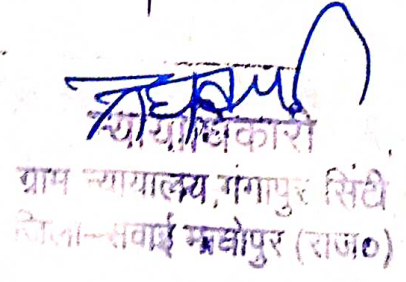 न्यायाधिकारी
ग्राम न्यायालय,गंगापुर सिटी
जिला-सवाई माधोपुर (राज०)